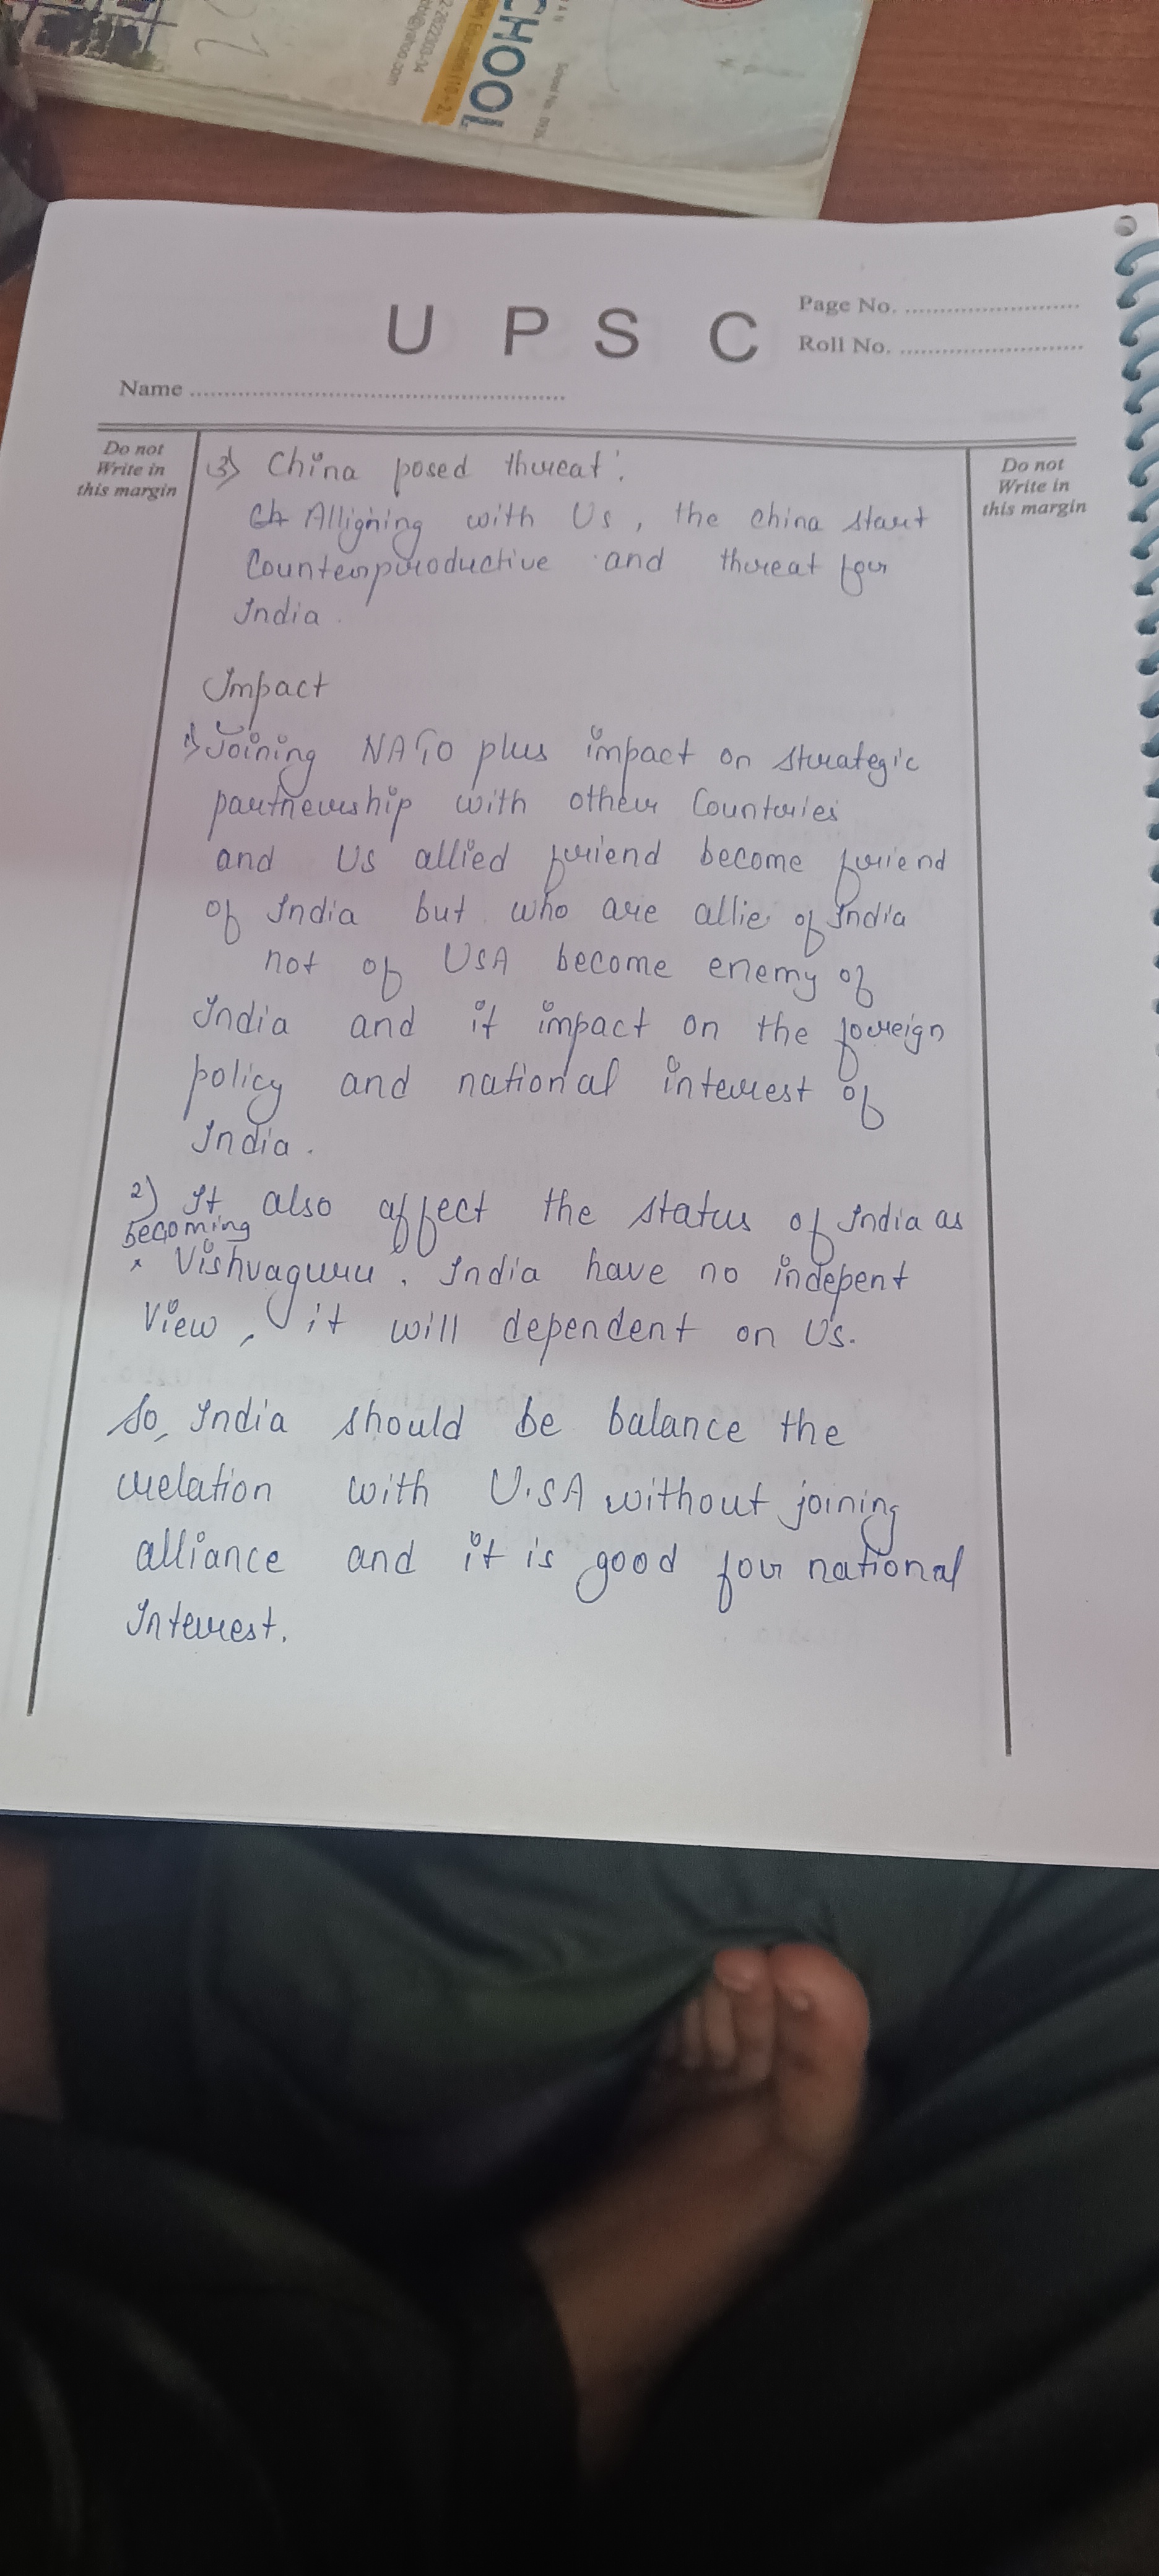 CHOOL
U P S C
Page No.
Roll No.
Name
Do not
Write in
this margin
Do not
Write in
this margin
3) China posed threat:
Alligning with Us, the china start
Counterproductive and threat for
India.
Impact
1) Joining NATO plus impact on strategic
partnership with other Countries
and US allied friend become friend
of India but who are allie of India
not of USA become enemy of
India and it impact on the foreign
policy and national interest of
India.
2) It also affect the status of India as
becoming
Vishvaguru. India have no indepent
View, it will dependent on US.
So, India should be balance the
relation with U.SA without joining
alliance and it is good for national
Interest.